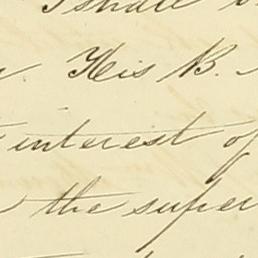 I shall
His B.
interest of
the super